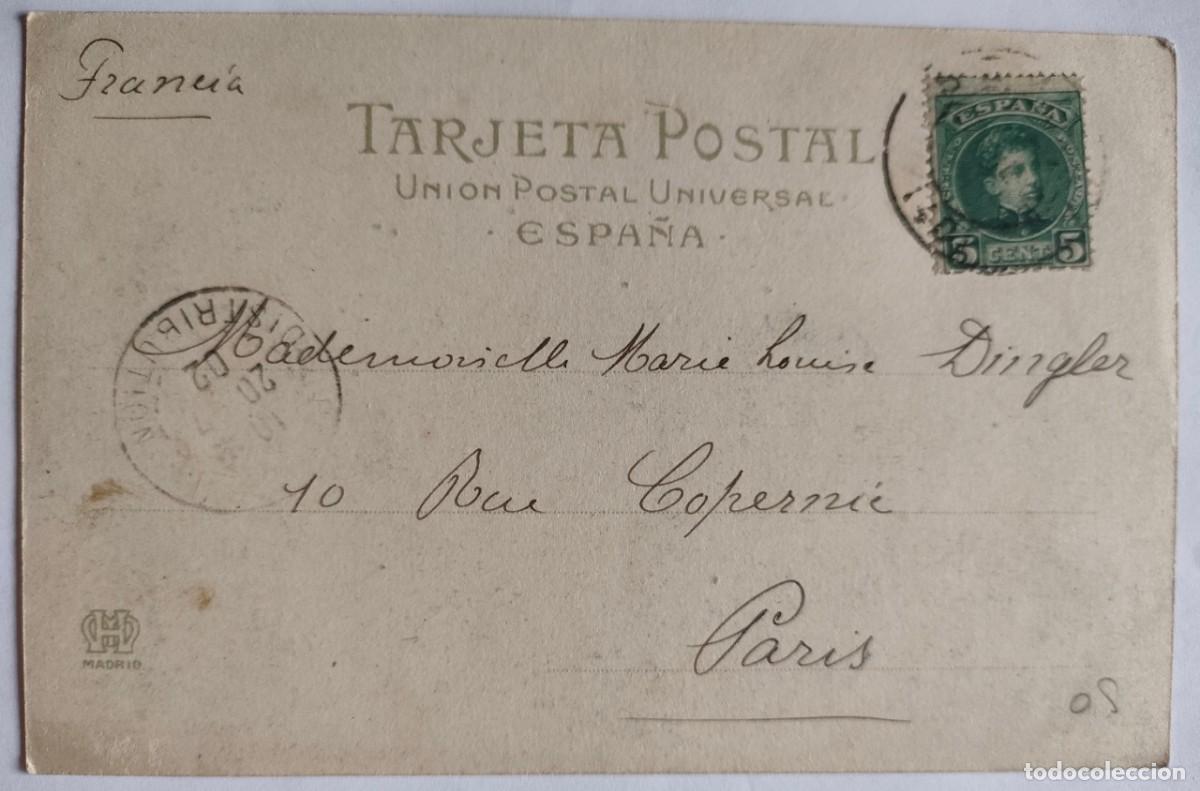 Francia
TARJETA POSTAL
UNION POSTAL UNIVERSAL
· ESPAÑA ·
ESPAÑA
5 CENT. 5
DISTRIBUTION
20
02
Mademoiselle Marie Louise Dingler
10 Rue Copernic
Paris
MADRID
todocoleccion